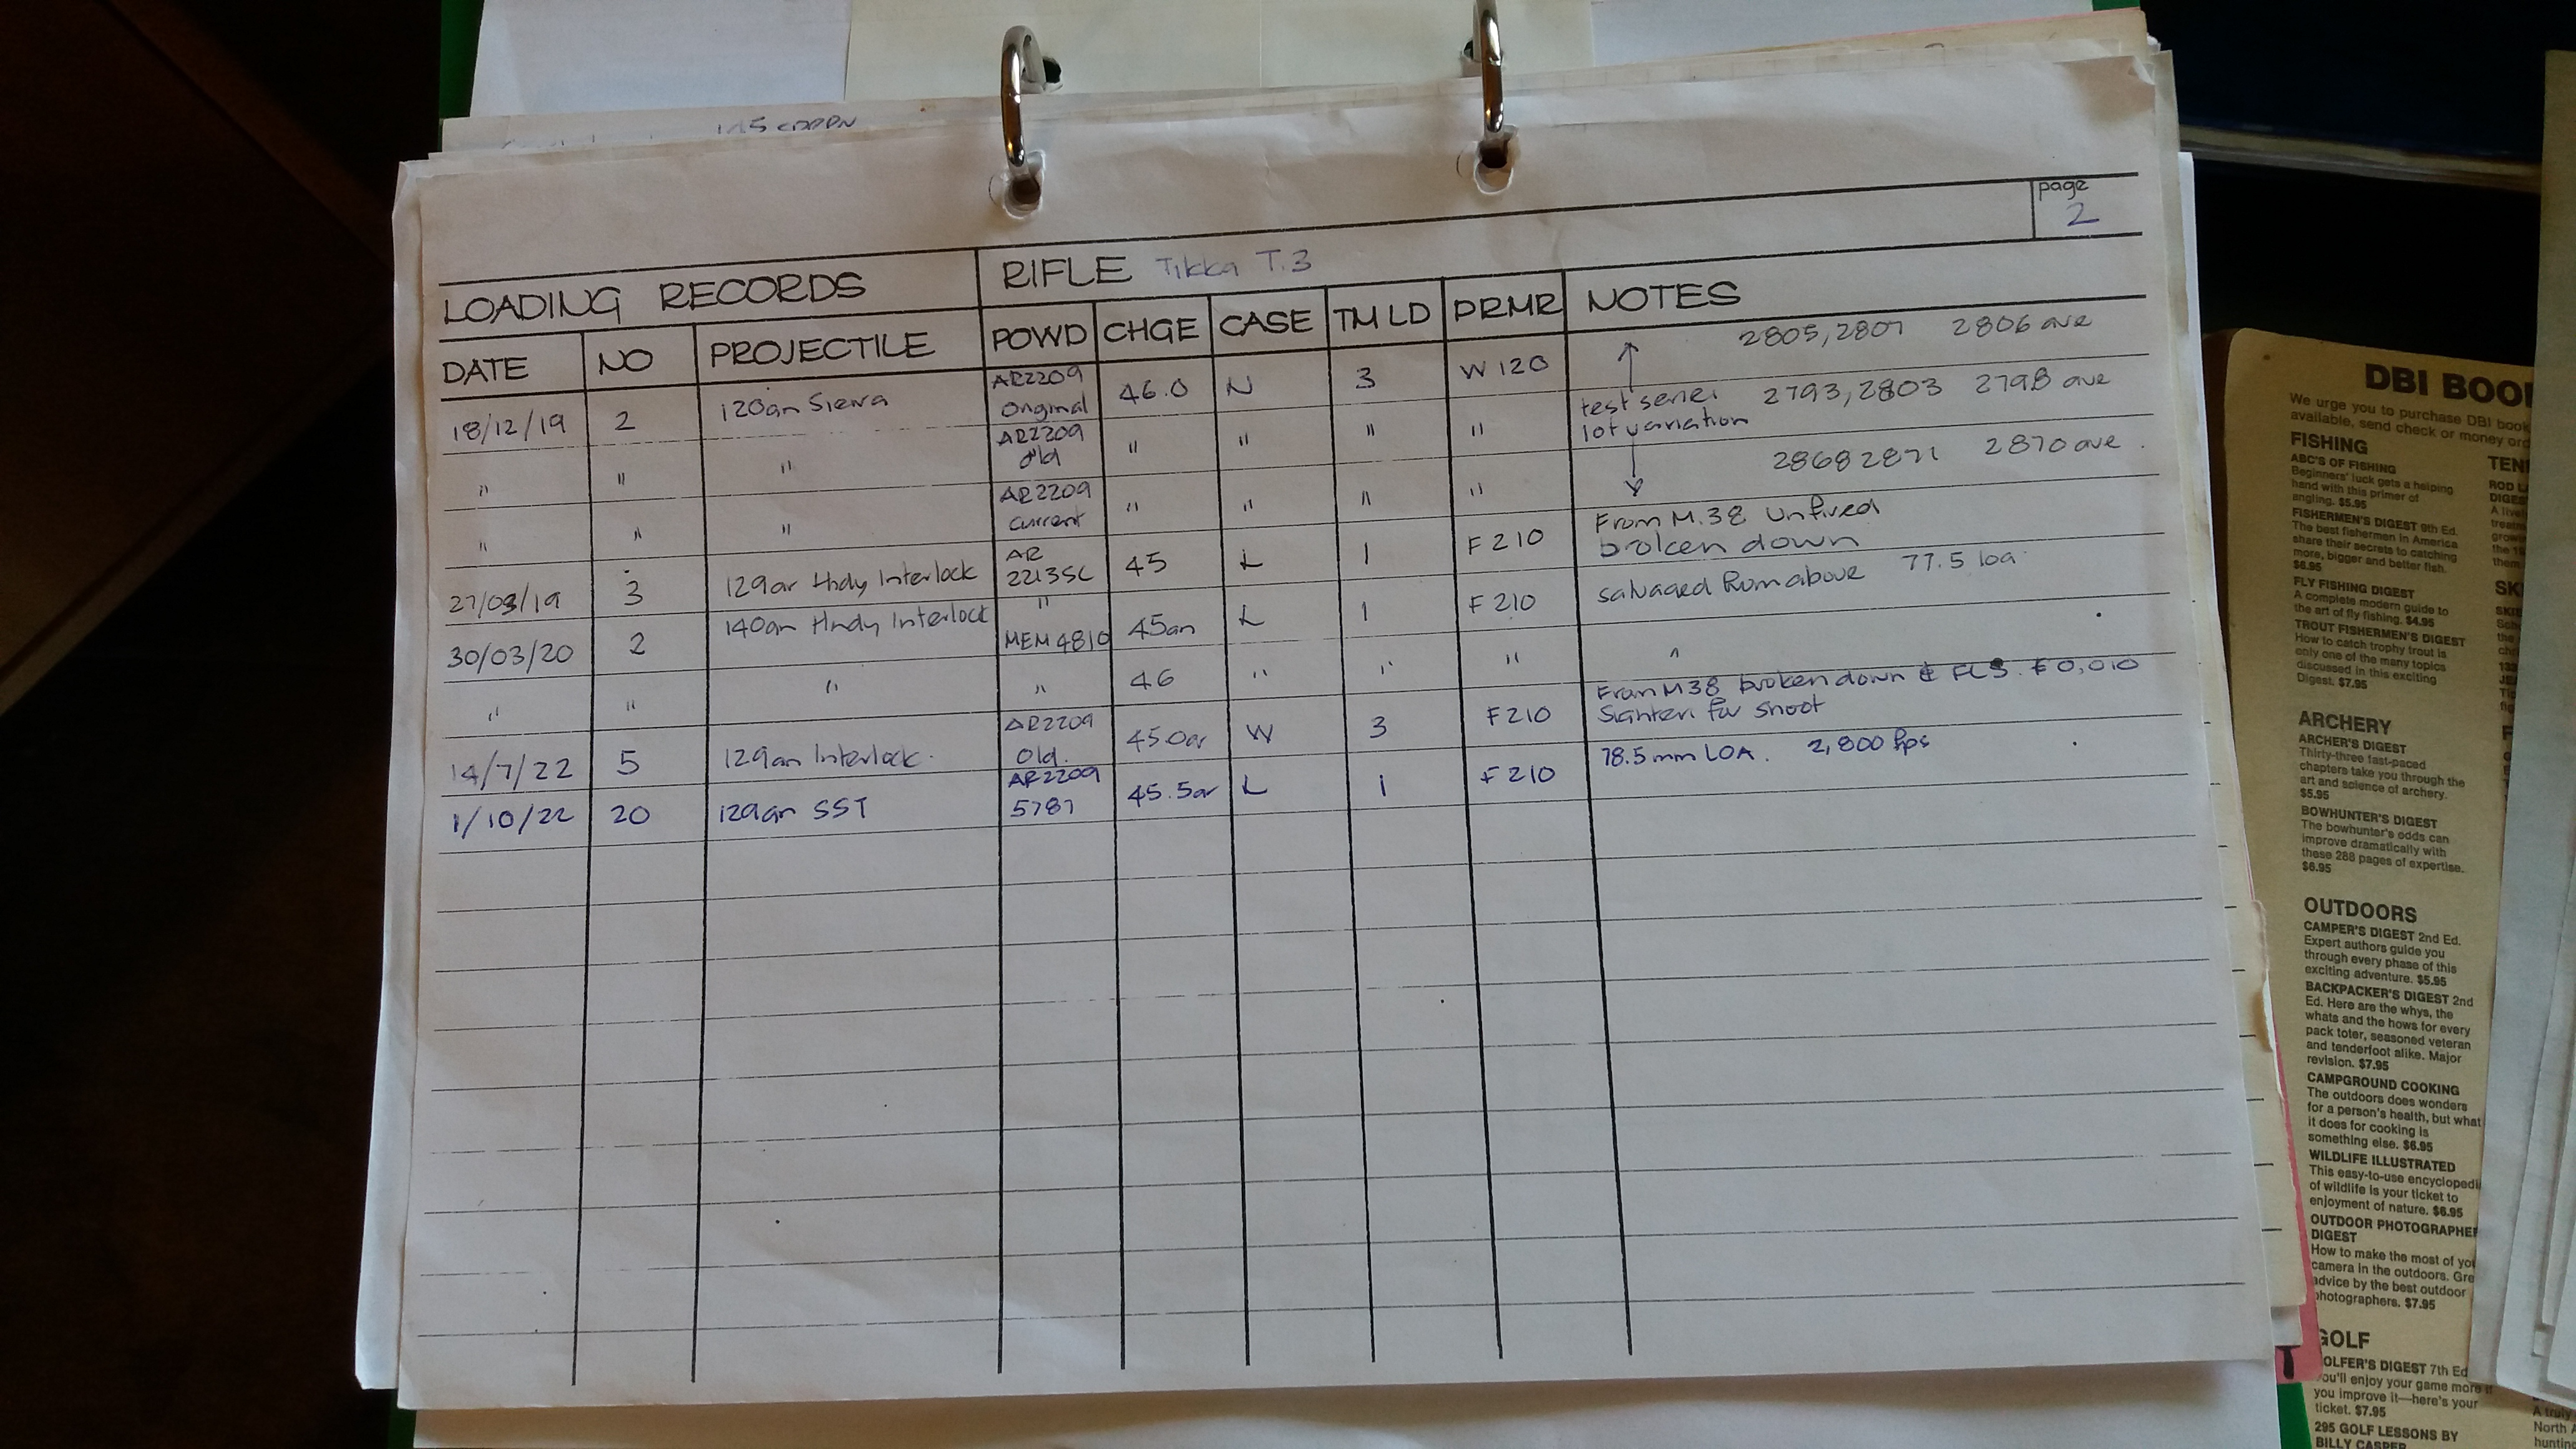 page
2
LOADING RECORDS RIFLE Tikka T.3
DATE NO PROJECTILE POWD CHGE CASE TMLD PRMR NOTES
18/12/19 2 120gn Sierra AR2209 Original 46.0 N 3 W120 2805, 2807 2806 ave
" " " AR2209 old " " " " test series lot variation 2793, 2803 2798 ave
" " " AR2209 current " " " " 2868 2871 2870 ave.
27/03/19 3 129gr Hndy Interlock AR 2213SC 45 L 1 F210 From M.38 unfired broken down
30/03/20 2 140gn Hndy Interlock " MEM4810 45gn L 1 F210 salvaged from above 77.5 loa
" " " " 46 " " " "
14/7/22 5 129gn Interlock. AR2209 Old. 45.0gr W 3 F210 From M38 broken down & FLS. 0,010 Sighters for shoot
1/10/22 20 129gn SST AR2209 5787 45.5gr L 1 F210 78.5mm LOA. 2,800 fps
DBI BOO
We urge you to purchase DBI book
available, send check or money ord
FISHING
ABC'S OF FISHING
Beginners' luck gets a helping
hand with this primer of
angling. $5.95
FISHERMEN'S DIGEST 9th Ed.
The best fishermen in America
share their secrets to catching
more, bigger and better fish.
$6.95
FLY FISHING DIGEST
A complete modern guide to
the art of fly fishing. $4.95
TROUT FISHERMEN'S DIGEST
How to catch trophy trout is
only one of the many topics
discussed in this exciting
Digest. $7.95
ARCHERY
ARCHER'S DIGEST
Thirty-three fast-paced
chapters take you through the
art and science of archery.
$5.95
BOWHUNTER'S DIGEST
The bowhunter's odds can
improve dramatically with
these 288 pages of expertise.
$6.95
OUTDOORS
CAMPER'S DIGEST 2nd Ed.
Expert authors guide you
through every phase of this
exciting adventure. $5.95
BACKPACKER'S DIGEST 2nd
Ed. Here are the whys, the
whats and the hows for every
pack toter, seasoned veteran
and tenderfoot alike. Major
revision. $7.95
CAMPGROUND COOKING
The outdoors does wonders
for a person's health, but what
it does for cooking is
something else. $6.95
WILDLIFE ILLUSTRATED
This easy-to-use encyclopedi
of wildlife is your ticket to
enjoyment of nature. $6.95
OUTDOOR PHOTOGRAPHER
DIGEST
How to make the most of you
camera in the outdoors. Gre
advice by the best outdoor
photographers. $7.95
GOLF
GOLFER'S DIGEST 7th Ed
You'll enjoy your game more if
you improve it—here's your
ticket. $7.95
295 GOLF LESSONS BY
BILLY CASPER